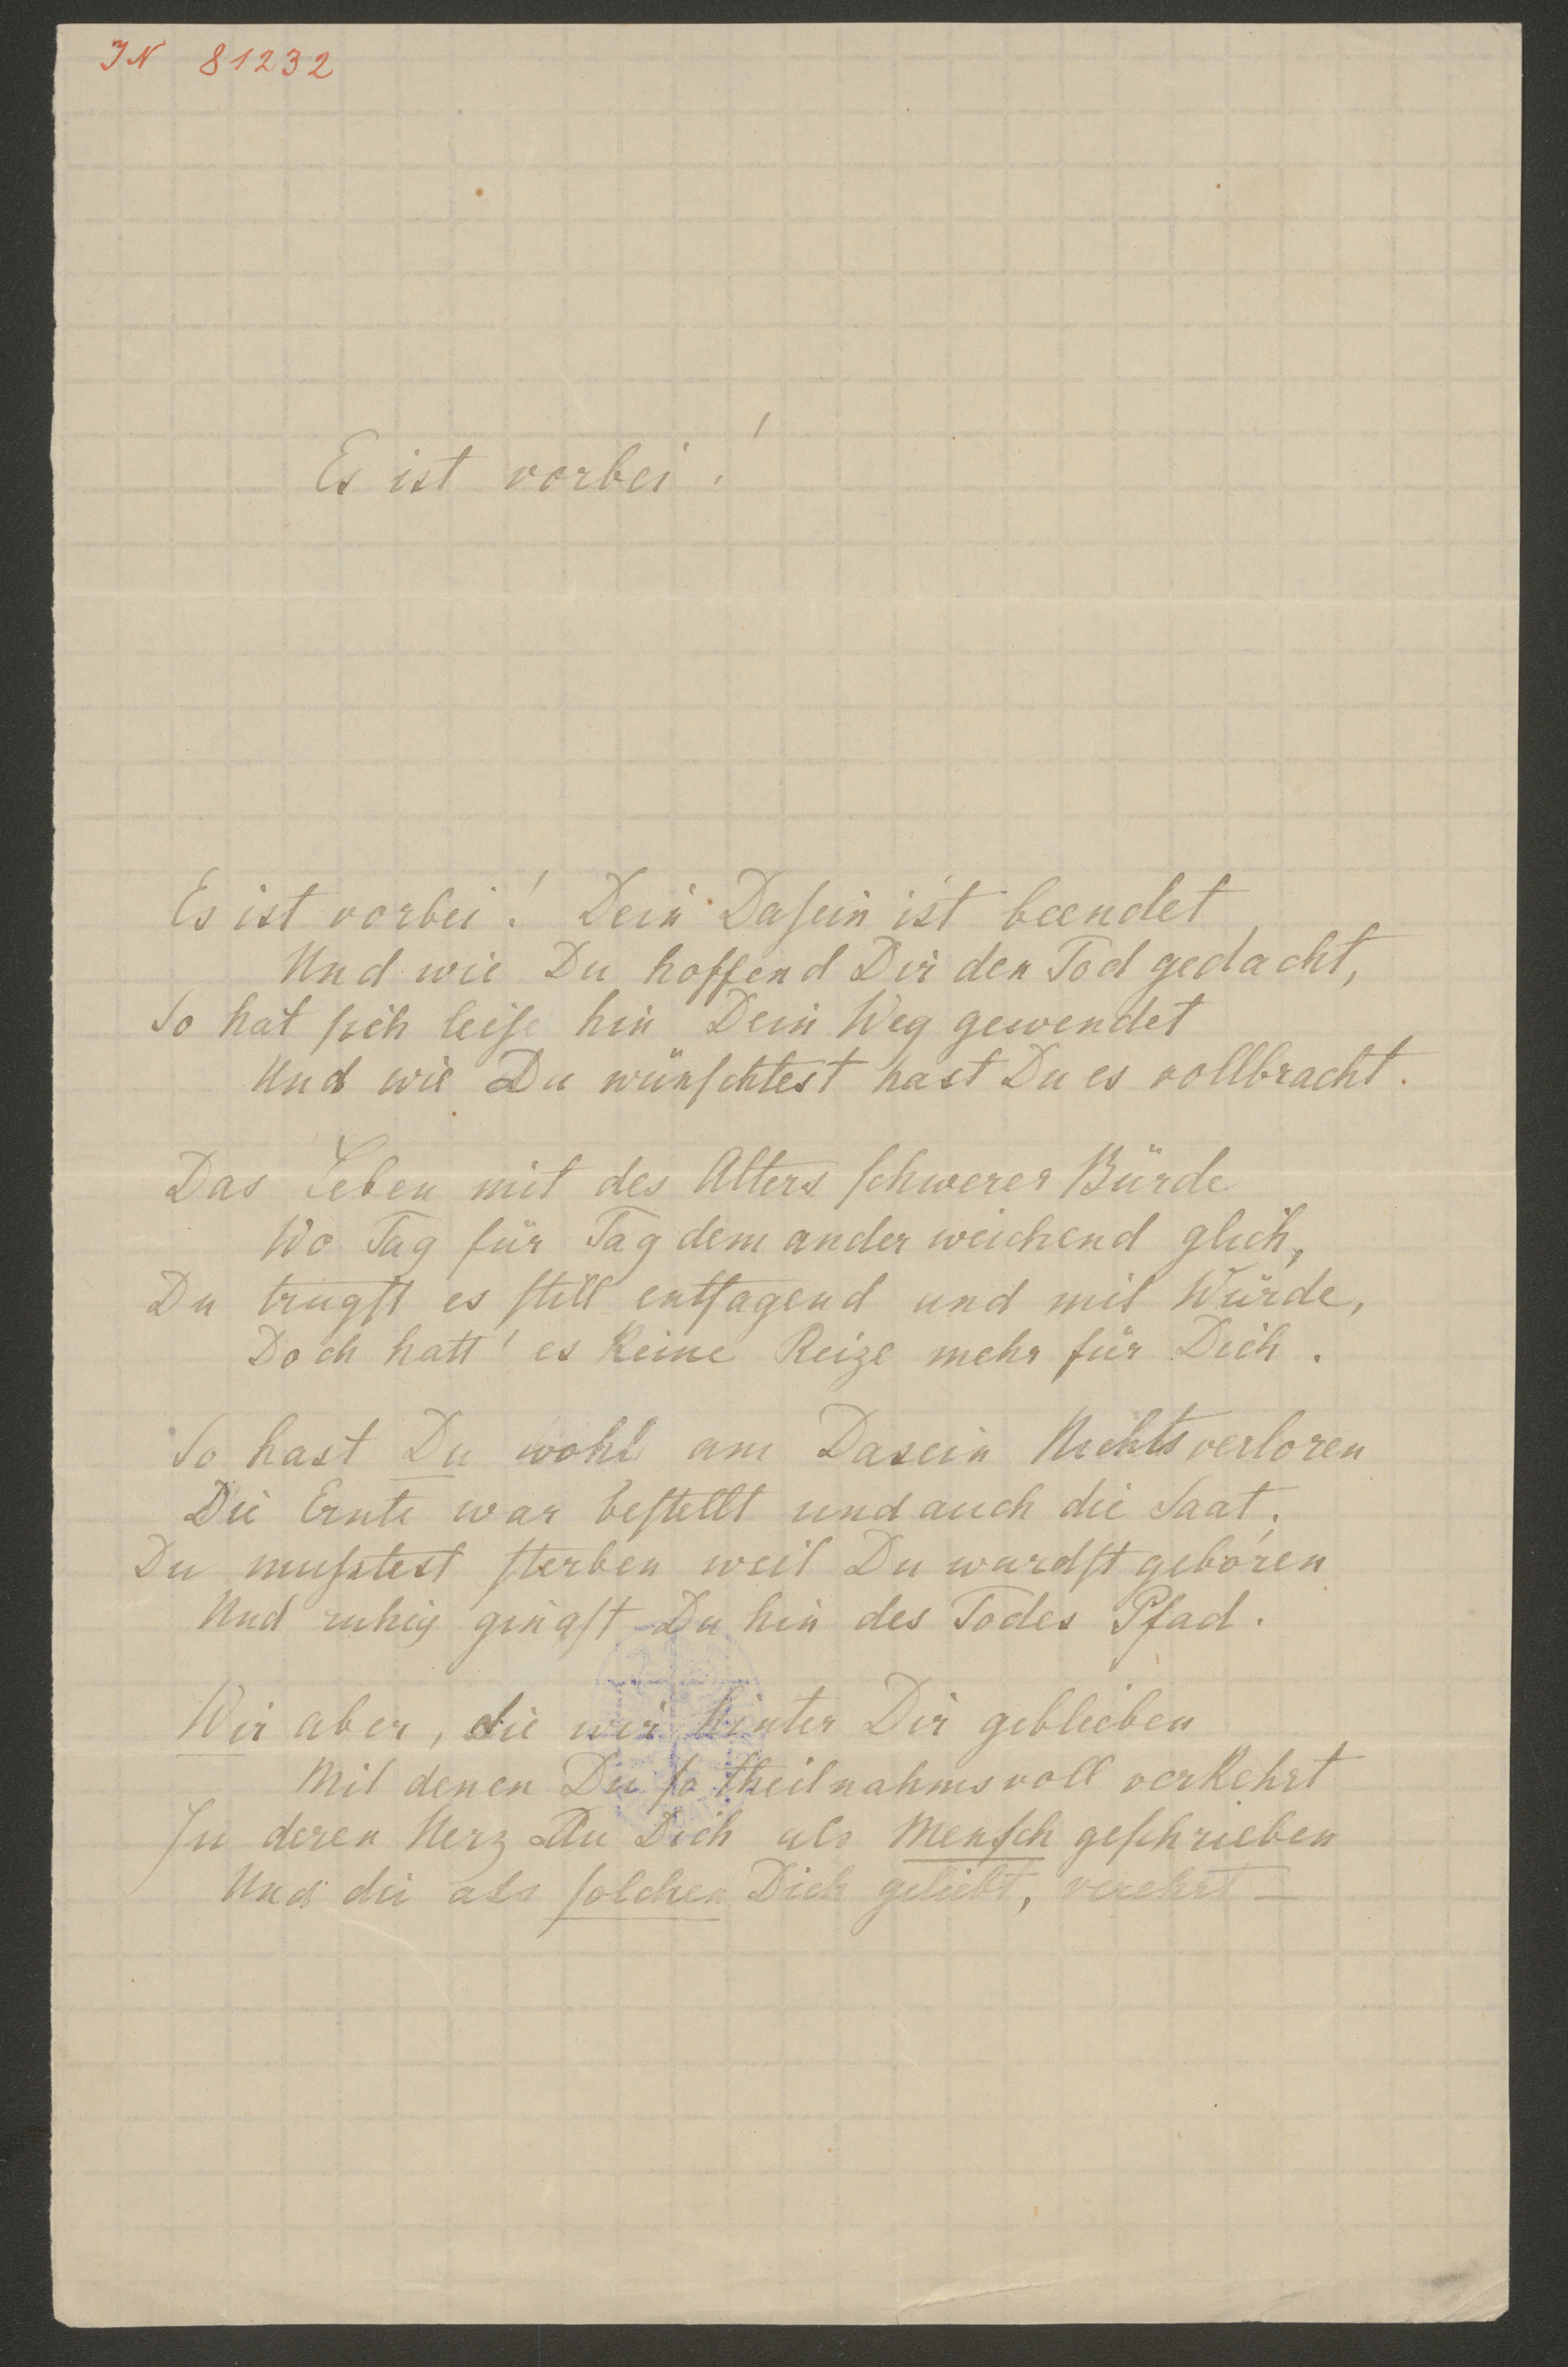 IN 81232
Es ist vorbei!
Es ist vorbei! Dein Daſein ist beendet
Und wie Du hoffend Dir den Tod gedacht,
So hat ſich leiſe hin Dein Weg gewendet
Und wie Du wünſchtest hast Du es vollbracht.
Das Leben mit des Alters ſchwerer Bürde
Wo Tag für Tag dem ander weichend glich,
Du trugſt es ſtill entſagend und mit Würde,
Doch hatt' es keine Reize mehr für Dich.
So hast Du wohl am Dasein Nichts verloren
Die Ernte war beſtellt und auch die Saat;
Du muſstest ſterben weil Du wardſt geboren
Und ruhig gingſt Du hin des Todes Pfad.
Wir aber, die wir hinter Dir geblieben
Mit denen Du ſo theilnahmsvoll verkehrt
In deren Herz Du Dich als Menſch geſchrieben
Und die als ſolchen Dich geliebt, verehrt —